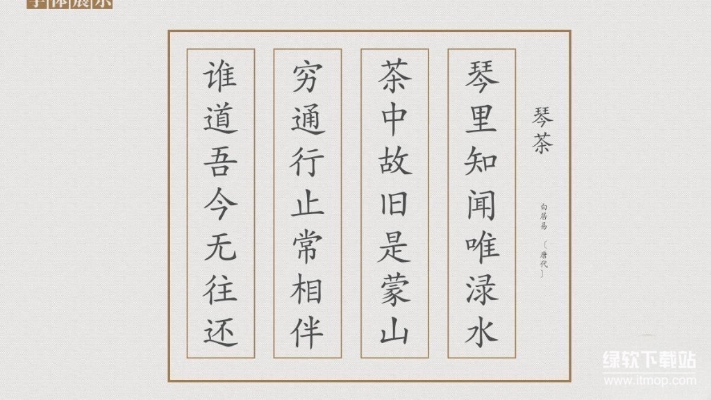 字体展示
琴茶
白居易 〔唐代〕
琴里知闻唯渌水
茶中故旧是蒙山
穷通行止常相伴
谁道吾今无往还
绿软下载站
www.itmop.com